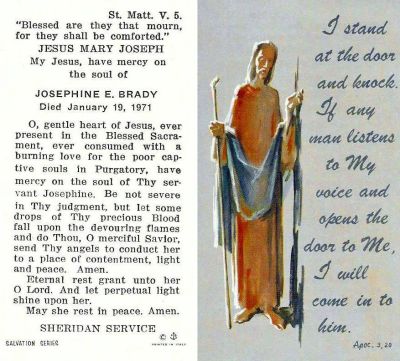 St. Matt. V. 5.
"Blessed are they that mourn,
for they shall be comforted."
JESUS MARY JOSEPH
My Jesus, have mercy on
the soul of
JOSEPHINE E. BRADY
Died January 19, 1971
O, gentle heart of Jesus, ever
present in the Blessed Sacra-
ment, ever consumed with a
burning love for the poor cap-
tive souls in Purgatory, have
mercy on the soul of Thy ser-
vant Josephine. Be not severe
in Thy judgment, but let some
drops of Thy precious Blood
fall upon the devouring flames
and do Thou, O merciful Savior,
send Thy angels to conduct her
to a place of contentment, light
and peace. Amen.
Eternal rest grant unto her
O Lord. And let perpetual light
shine upon her.
May she rest in peace. Amen.
SHERIDAN SERVICE
SALVATION SERIES
©
PRINTED IN ITALY
I stand
at the door
and knock.
If any
man listens
to My
voice and
opens the
door to Me,
I will
come in to
him.
Apoc. 3,20